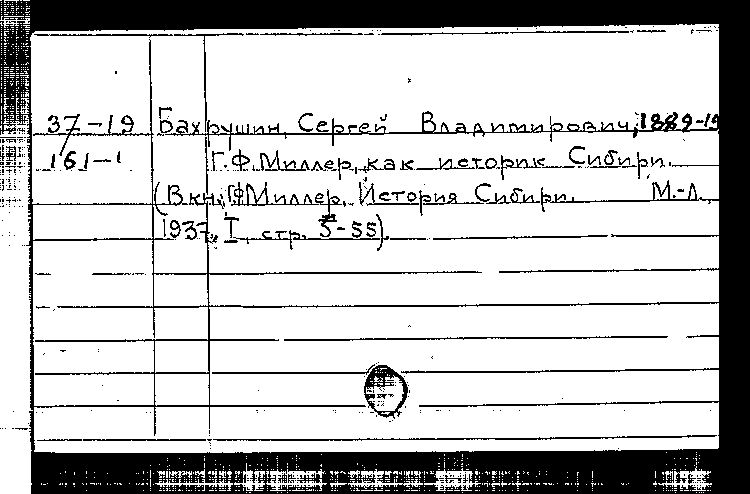 37-19 Бахрушин, Сергей Владимирович, 1882-19
161-1 Г.Ф. Миллер, как историк Сибири.
(В кн.: Г.Ф Миллер. История Сибири. М.-Л.,
1937, I, стр. 5-55).